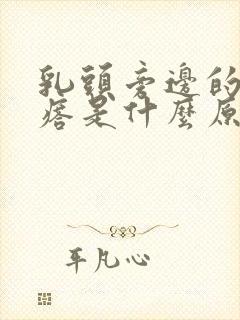 乳頭旁邊的
痞是什麼原
平凡心